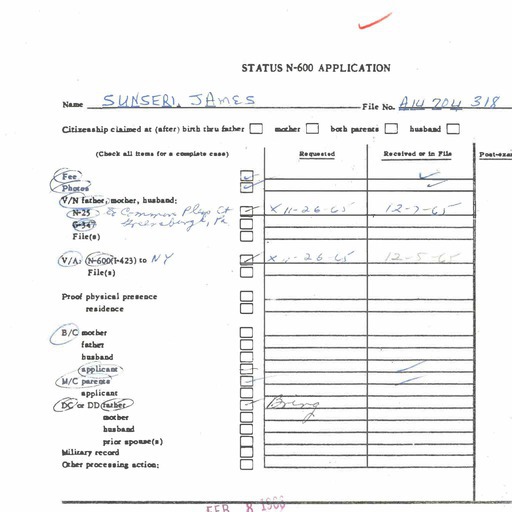 STATUS N-600 APPLICATION
Name SUNSERI, JAMES File No. A14 704 318
Citizenship claimed at (after) birth thru father mother both parents husband
(Check all items for a complete case) Requested Received or in File Post-exa
Fee
Photos
V/N father, mother, husband:
N-25 to Common Pleas Ct X 11-26-65 12-7-65
G-347 Greensburgh, Pa.
File(s)
V/A: N-600(I-423) to NY X 11-26-65 12-5-65
File(s)
Proof physical presence
residence
B/C mother
father
husband
applicant
M/C parents
applicant
DC or DD father Bring
mother
husband
prior spouse(s)
Military record
Other processing action:
FEB 8 1966